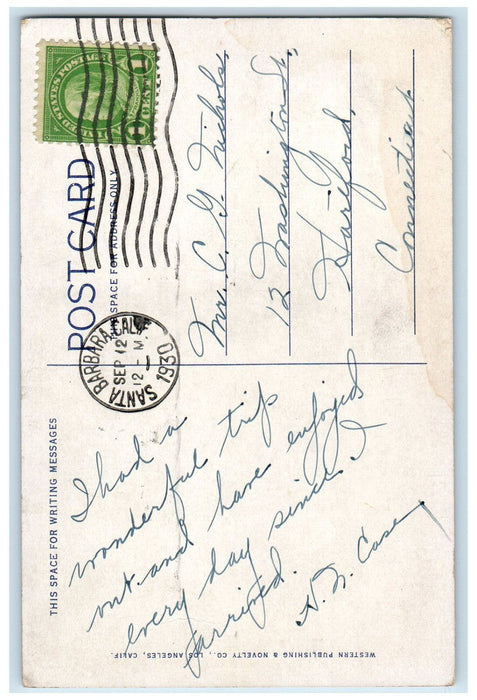 THIS SPACE FOR WRITING MESSAGES
I had a
wonderful trip
out and have enjoyed
every day since I
arrived.
H. N. Case
WESTERN PUBLISHING & NOVELTY CO., LOS ANGELES, CALIF.
POST CARD
THIS SPACE FOR ADDRESS ONLY
SANTA BARBARA, CALIF.
SEP 12
12 - M.
1930
UNITED STATES POSTAGE
1 CENT 1
Mrs. C. G. Nichols,
12 Washington St.,
Hartford,
Connecticut